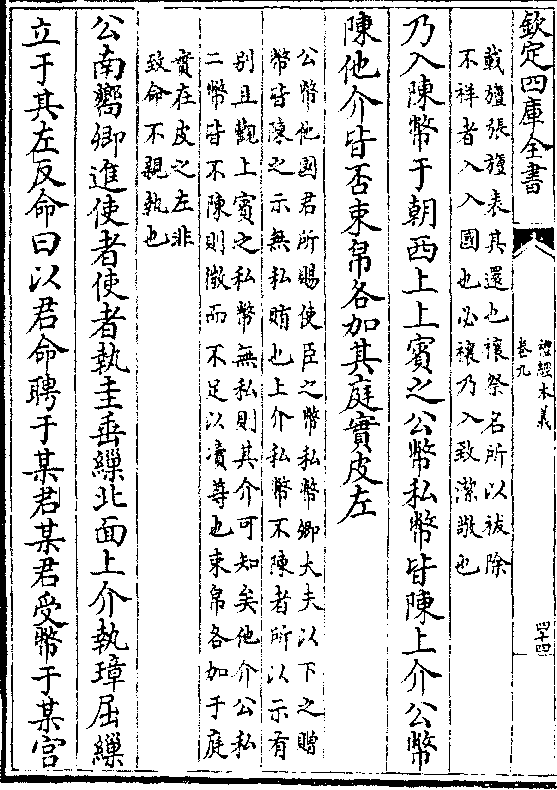 欽定四庫全書
禮經本義
卷九
四十四
載旜張旜表其還也禳祭名所以祓除
不祥者入入國也必禳乃入致潔敬也
乃入陳幣于朝西上上賓之公幣私幣皆陳上介公幣
陳他介皆否束帛各加其庭實皮左
公幣他國君所賜使臣之幣私幣卿大夫以下之贈
幣皆陳之示無私賄也上介私幣不陳者所以示有
别且觀上賓之私幣無私則其介可知矣他介公私
二幣皆不陳則微而不足以凟尊也束帛各加于庭
實在皮之左非
致命不親執也
公南嚮卿進使者使者執圭垂繅北面上介執璋屈繅
立于其左反命曰以君命聘于某君某君受幣于某宫